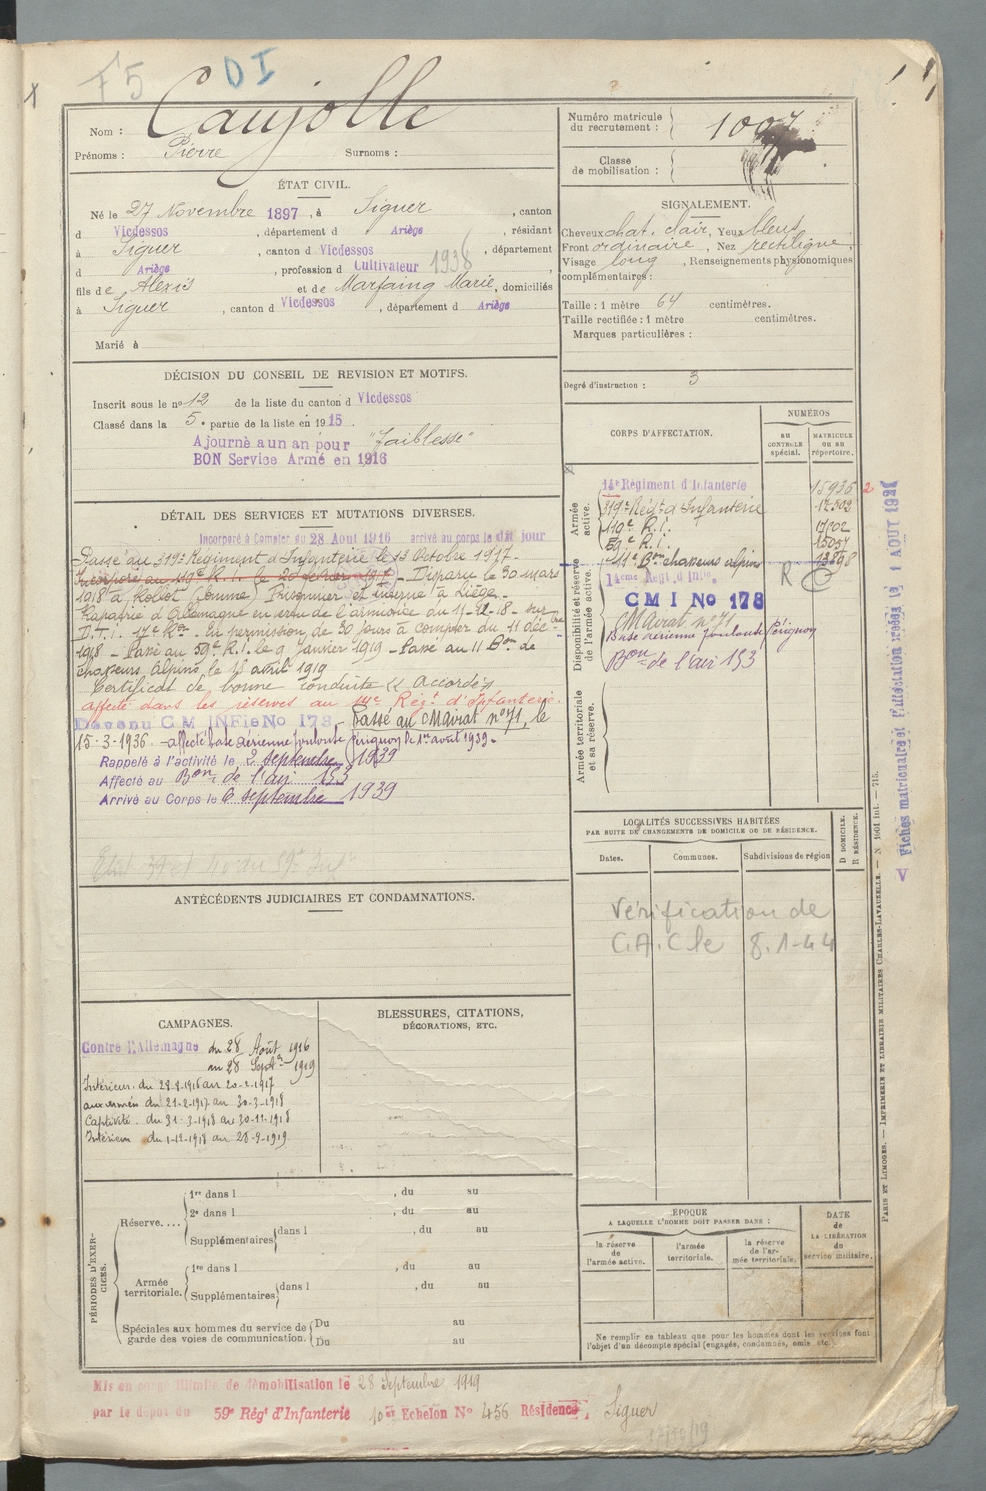 F5
DI
Nom : Caujolle
Prénoms : Pierre Surnoms :
Numéro matricule du recrutement : 1007
Classe de mobilisation :
ÉTAT CIVIL.
Né le 27 Novembre 1897, à Siguer, canton
d Vicdessos, département d Ariège, résidant
à Siguer, canton d Vicdessos, département
d Ariège, profession d Cultivateur 1938
fils de Alexis et de Marfaing Marie, domiciliés
à Siguer, canton d Vicdessos, département d Ariège
Marié à
SIGNALEMENT.
Cheveux chat. clair, Yeux bleus
Front ordinaire, Nez rectiligne,
Visage long, Renseignements physionomiques
complémentaires :
Taille : 1 mètre 64 centimètres.
Taille rectifiée : 1 mètre centimètres.
Marques particulières :
Degré d'instruction : 3
DÉCISION DU CONSEIL DE REVISION ET MOTIFS.
Inscrit sous le nº 12 de la liste du canton d Vicdessos
Classé dans la 5e partie de la liste en 1915
Ajourné a un an pour "Faiblesse"
BON Service Armé en 1916
DÉTAIL DES SERVICES ET MUTATIONS DIVERSES.
Incorporé à Compter du 28 Aout 1916 arrivé au corps le dit jour
Passé au 319e Régiment d'Infanterie le 13 Octobre 1917 -
Incorporé au 119e R.I. le 20 février 1917 - Disparu le 30 mars
1918 à Rollot (Somme) Prisonnier et interné à Liège.
Rapatrié d'Allemagne en vertu de l'armistice du 11-12-18 - sur
D.T.I. 17e Ron. En permission de 30 jours à compter du 11 déc-bre
1918 - Passé au 59e R.I. le 9 janvier 1919 - Passé au 11 Bon de
chasseurs Alpins le 15 avril 1919
Certificat de bonne conduite "Accordé"
affecté dans les réserves au 14e Régt d'Infanterie.
Devenu C M INFie No 178, - Passé au CMairat nº 71, le
15-3-1936. - affecté base aérienne Toulouse Pérignon le 1er avril 1939 -
Rappelé à l'activité le 2 septembre 1939
Affecté au Bon de l'air 153
Arrivé au Corps le 6 septembre 1939
CORPS D'AFFECTATION.
NUMÉROS
AU CONTROLE spécial.
MATRICULE OU AU répertoire.
Armée active.
14e Régiment d'Infanterie 15936 2
319e Régt d'Infanterie 17.502
119e R.I. 17202
59e R.I. 15057
11e Bon chasseurs alpins 13898
Disponibilité et réserve de l'armée active.
14eme Régt d'Infie R
CMI No 178
CMairat nº 71
Base Aérienne Toulouse Pérignon
Bon de l'air 153
Armée territoriale et sa réserve.
LOCALITÉS SUCCESSIVES HABITÉES
PAR SUITE DE CHANGEMENTS DE DOMICILE OU DE RÉSIDENCE.
Dates. Communes. Subdivisions de région
D DOMICILE. R RÉSIDENCE.
Vérification de
C.A.C le 8.1-44
ANTÉCÉDENTS JUDICIAIRES ET CONDAMNATIONS.
CAMPAGNES.
Contre l'Allemagne du 28 Août 1916
au 28 Septe 1919
Intérieur. du 28-8-1916 au 20-2-1917
aux armées du 21-2-1917 au 30-3-1918
Captivité. du 31-3-1918 au 30-11-1918
Intérieur du 1-12-1918 au 28-9-1919
BLESSURES, CITATIONS,
DÉCORATIONS, ETC.
PÉRIODES D'EXERCICES.
Réserve.... 1re dans l , du au
2e dans l , du au
Supplémentaires dans l , du au
Armée territoriale. 1re dans l , du au
Supplémentaires dans l , du au
Spéciales aux hommes du service de garde des voies de communication. Du au
Du au
ÉPOQUE
A LAQUELLE L'HOMME DOIT PASSER DANS :
la réserve de l'armée active.
l'armée territoriale.
la réserve de l'armée territoriale.
DATE de LA LIBÉRATION du service militaire.
Ne remplir ce tableau que pour les hommes dont les services font
l'objet d'un décompte spécial (engagés, condamnés, omis etc.)
PARIS ET LIMOGES. — IMPRIMERIE ET LIBRAIRIE MILITAIRES CHARLES-LAVAUZELLE. — N 1001 int. — 715.
Mis en congé illimité de démobilisation le 28 Septembre 1919
par le dépôt du 59e Régt d'Infanterie 10e Echelon No 456 Résidence Siguer